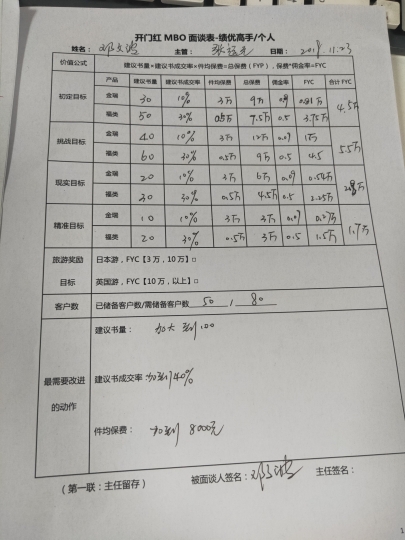 开门红 MBO 面谈表-绩优高手/个人
姓名： 主管： 日期：2018.11.23
价值公式 建议书量×建议书成交率×件均保费=总保费（FYP），保费*佣金率=FYC
产品 建议书量 建议书成交率 件均保费 总保费 佣金率 FYC 合计 FYC
初定目标 金瑞 30 10% 3万 9万 0.09 0.81万 4.5万
福类 50 30% 0.5万 7.5万 0.5 3.75万
挑战目标 金瑞 40 10% 3万 12万 0.09 1万 5.5万
福类 60 30% 0.5万 9万 0.5 4.5
现实目标 金瑞 20 10% 3万 6万 0.09 0.54万
福类 30 30% 0.5万 4.5万 0.5 2.25万
精准目标 金瑞 10 10% 3万 3万 0.09 0.27万 1.7万
福类 20 30% 0.5万 3万 0.5 1.5万
旅游奖励 日本游，FYC【3万，10万】□
目标 英国游，FYC【10万，以上】□
客户数 已储备客户数/需储备客户数 50 / 80
建议书量： 加大到100
最需要改进 建议书成交率 加到40%
的动作
件均保费： 加到 8000元
（第一联：主任留存） 被面谈人签名： 主任签名：
1